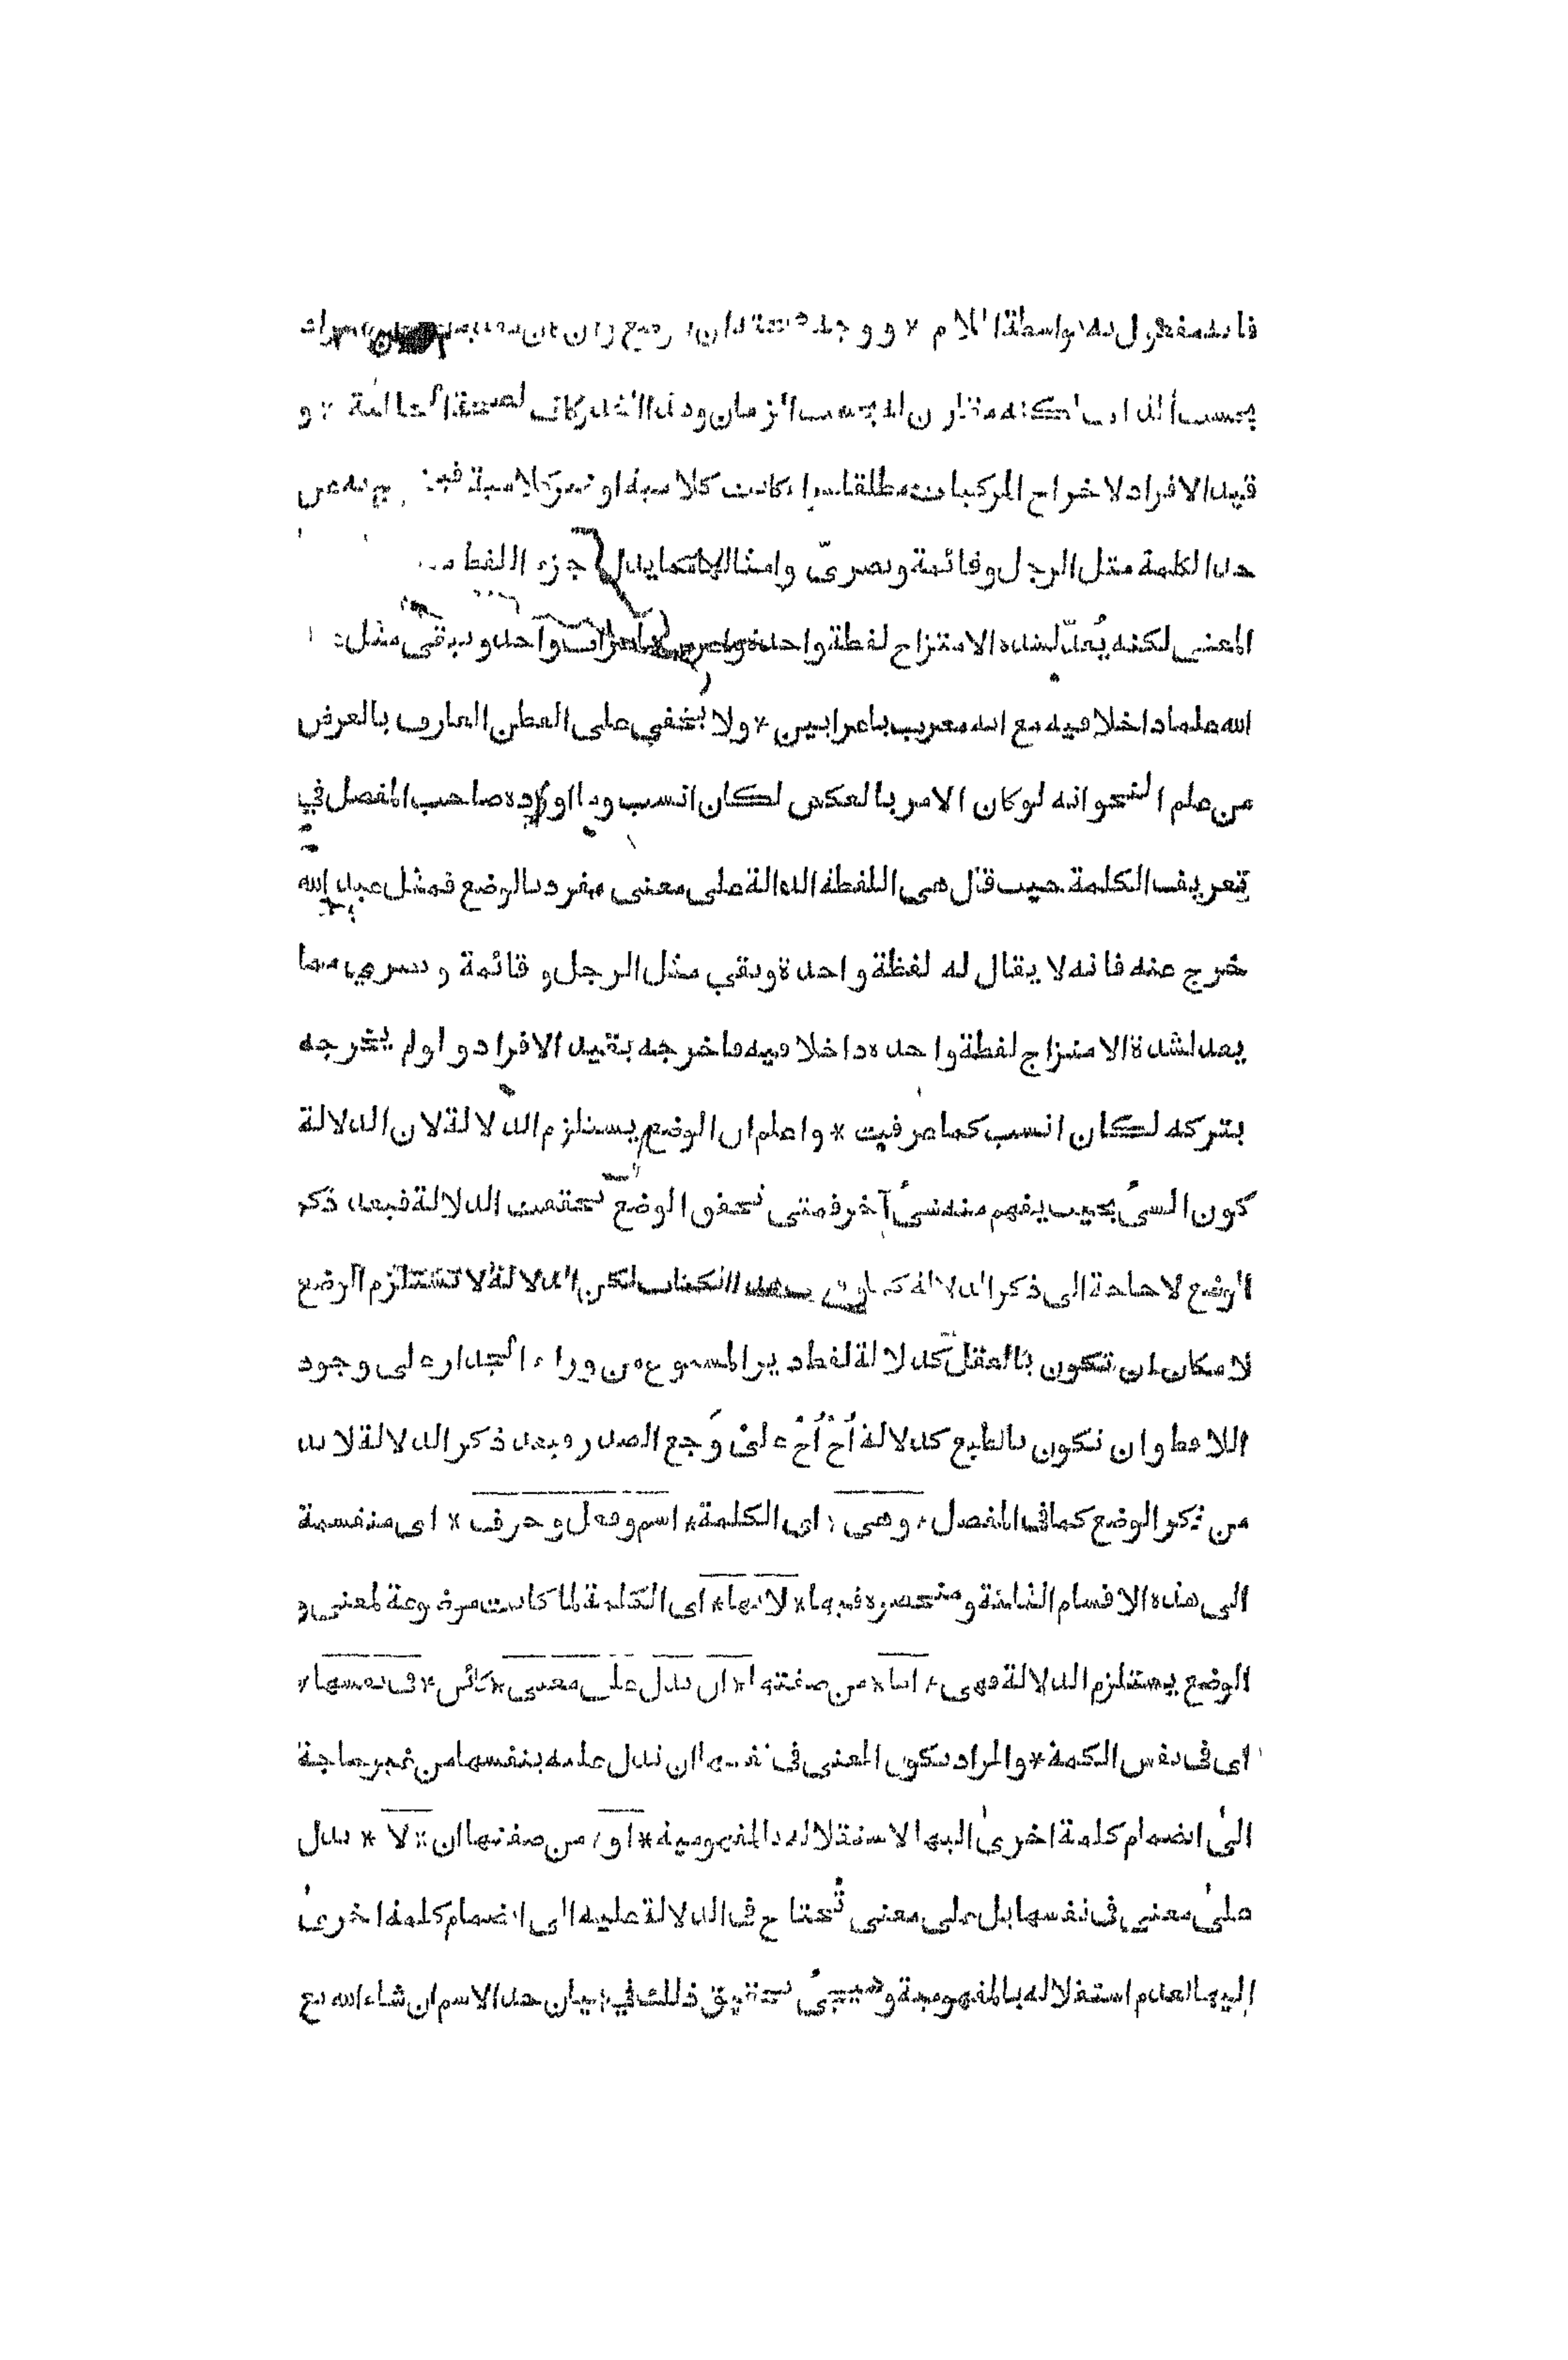 فانه مفعول به بواسطة اللام * ووجه
بحسب الذات لكنه مقارن له بحسب الزمان وهذا القدر كاف لصحة الحالية * و
قيد الافراد لاخراج المركبات مطلقا سواء كانت كلامية او غير كلامية فيخرج به عن
حد الكلمة مثل الرجل وقائمة وبصرىّ وامثالها مما يدل جزء اللفظ
المعنى لكنه يُعدّ لشدة الامتزاج لفظة واحدة واعرب باعراب واحد ويبقى مثل
الله علما داخلا فيه مع انه معرب باعرابين * ولا يخفي على الفطن العارف بالغرض
من علم النحو انه لو كان الامر بالعكس لكان انسب وما اورده صاحب المفصل في
تعريف الكلمة حيث قال هى اللفظة الدالة على معنى مفرد بالوضع فمثل عبد الله
خرج عنه فانه لا يقال له لفظة واحدة وبقي مثل الرجل و قائمة و بصري مما
يعد لشدة الامتزاج لفظة واحدة داخلا فيه فاخرجه بقيد الافراد ولو لم يخرجه
بتركه لكان انسب كما عرفت * واعلم ان الوضع يستلزم الدلالة لان الدلالة
كون الشىُ بحيث يفهم منه شىُ آخر فمتى تحقق الوضع تحققت الدلالة فبعد ذكر
الوضع لا حاجة الى ذكر الدلالة كما وقع فى هذا الكتاب لكن الدلالة لا تستلزم الوضع
لامكان ان تكون بالعقل كدلالة لفظ ديز المسموع من وراء الجدار على وجود
اللافظ وان تكون بالطبع كدلالة اُحْ اُحْ على وَجع الصدر فبعد ذكر الدلالة لا بد
من ذكر الوضع كما فى المفصل * وهى * اى الكلمة * اسم وفعل وحرف * اى منقسمة
الى هذه الاقسام الثلثة ومنحصرة فيها * لانها * اى الكلمة لما كانت موضوعة لمعنى و
الوضع يستلزم الدلالة فهى * اما * من صفتها * ان تدل على معنى * كائن * فى نفسها *
اى فى نفس الكلمة * والمراد بكون المعنى فى نفسها ان تدل عليه بنفسها من غير حاجة
الى انضمام كلمة اخرى اليها لاستقلاله بالمفهومية * او * من صفتها ان * لا * تدل
على معنى فى نفسها بل على معنى تُحتاج فى الدلالة عليه الى انضمام كلمة اخرى
اليها لعدم استقلاله بالمفهومية وسيجىُ تحقيق ذلك في بيان حد الاسم ان شاء الله تع